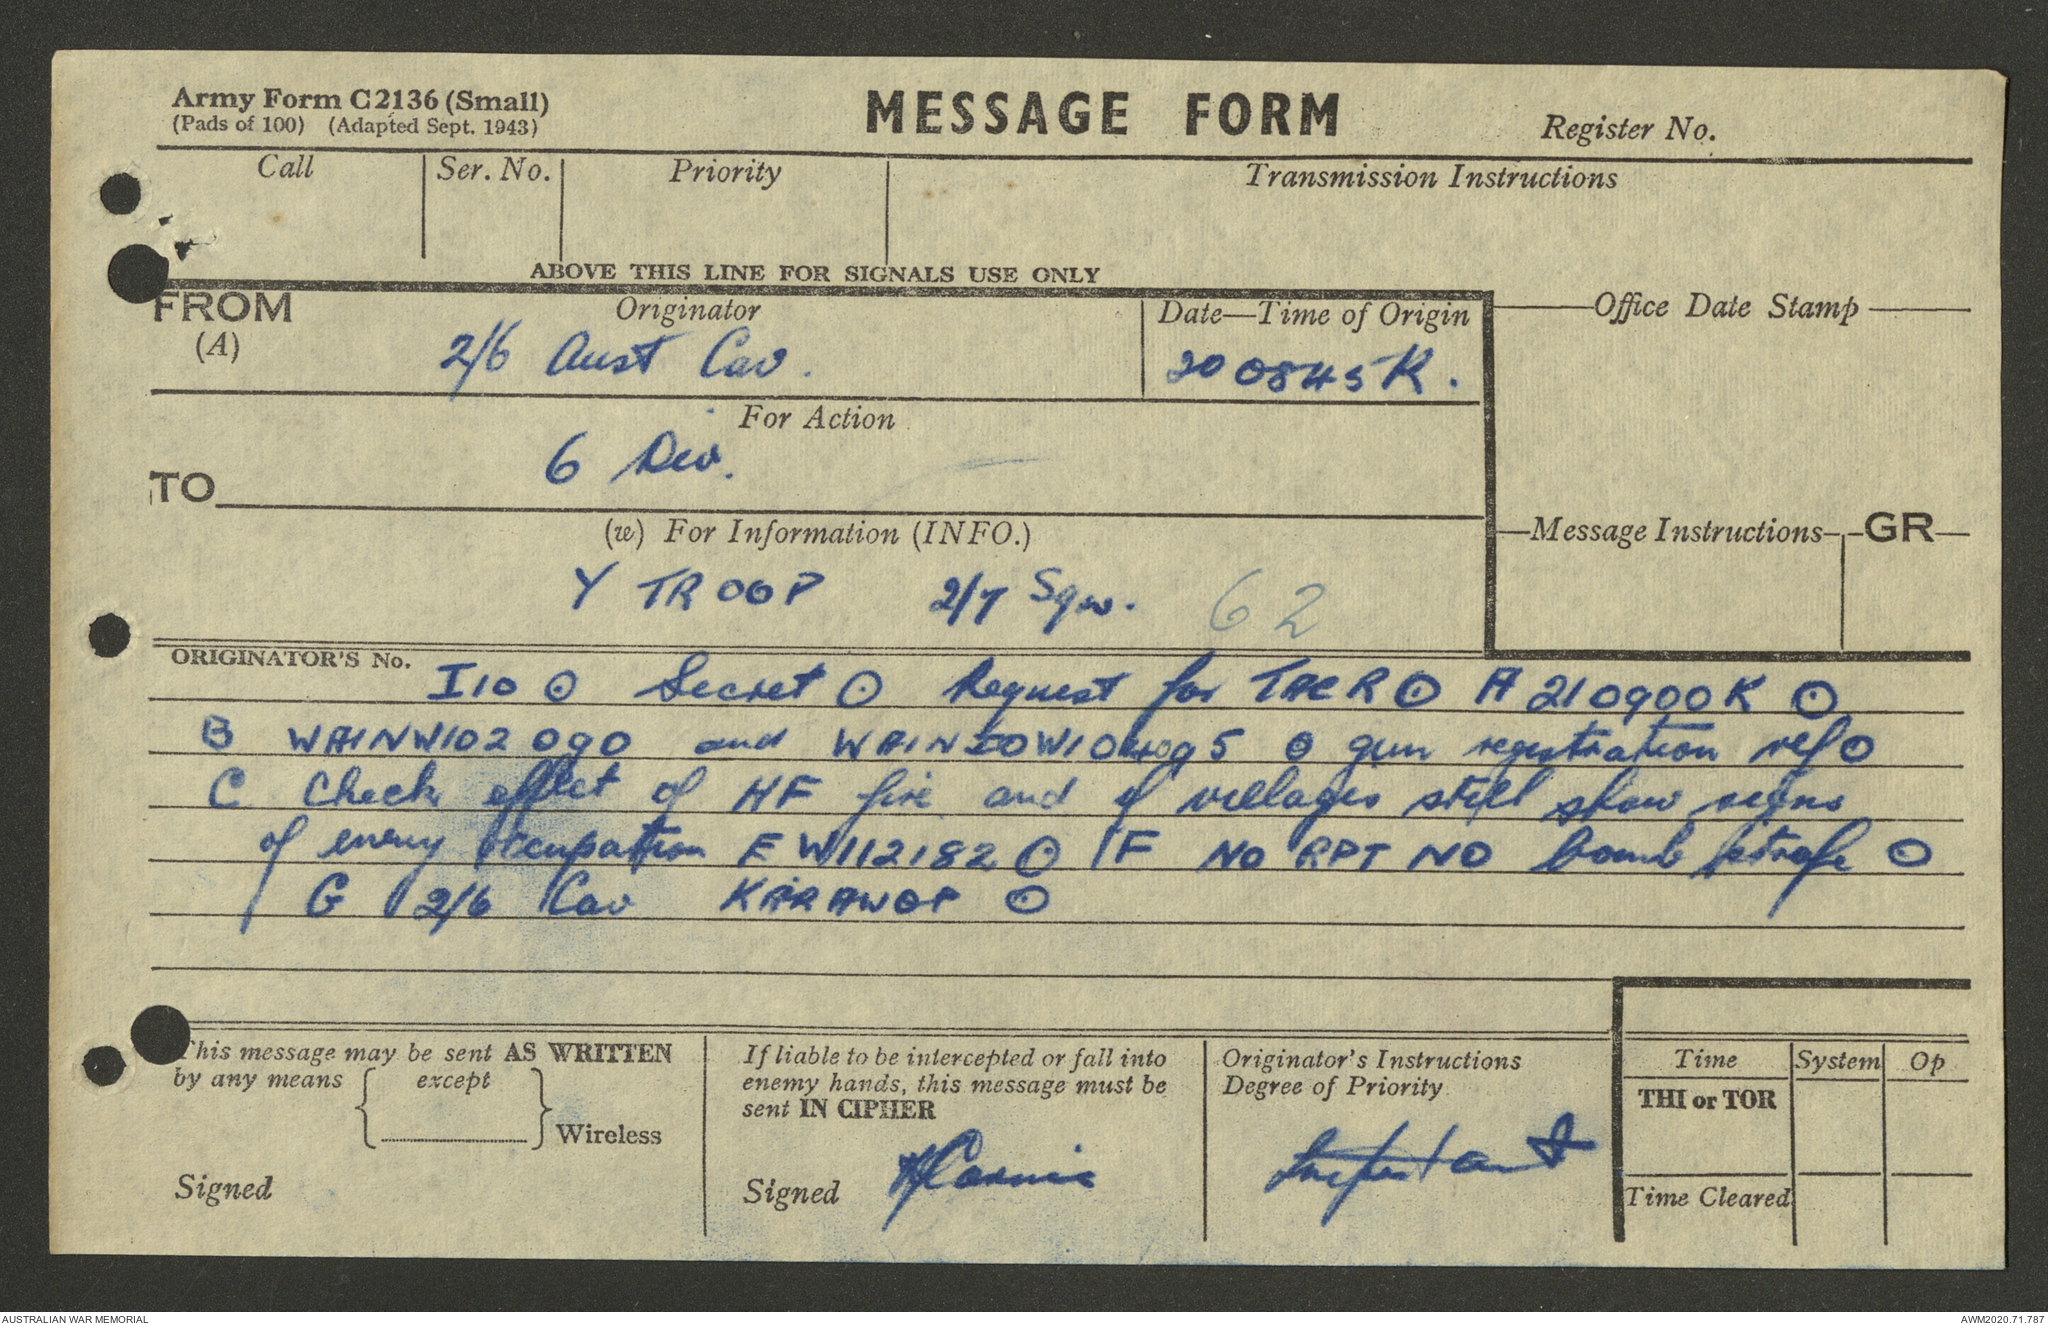 Army Form C2136 (Small)
(Pads of 100) (Adapted Sept. 1943)
MESSAGE FORM
Register No.
Call
Ser. No.
Priority
Transmission Instructions
ABOVE THIS LINE FOR SIGNALS USE ONLY
FROM
(A)
Originator
2/6 Aust Cav.
Date—Time of Origin
200845K.
Office Date Stamp
For Action
6 Div.
TO
(w) For Information (INFO.)
Y TROOP 2/7 Sqn. 62
Message Instructions
GR
ORIGINATOR'S No.
I10 ⊙ Secret ⊙ Request for TACR ⊙ A 210900K ⊙
B WAINW102090 and 095 ⊙ gun registration ref ⊙
C Check effect of HF fire and if villages still show signs
of enemy occupation E W112182 ⊙ F NO RPT NO bomb strafe ⊙
G 2/6 Cav KARAWOP ⊙
This message may be sent AS WRITTEN
by any means
except
Wireless
Signed
If liable to be intercepted or fall into
enemy hands, this message must be
sent IN CIPHER
Signed
Originator's Instructions
Degree of Priority
Important
Time
System
Op
THI or TOR
Time Cleared
AUSTRALIAN WAR MEMORIAL
AWM2020.71.787